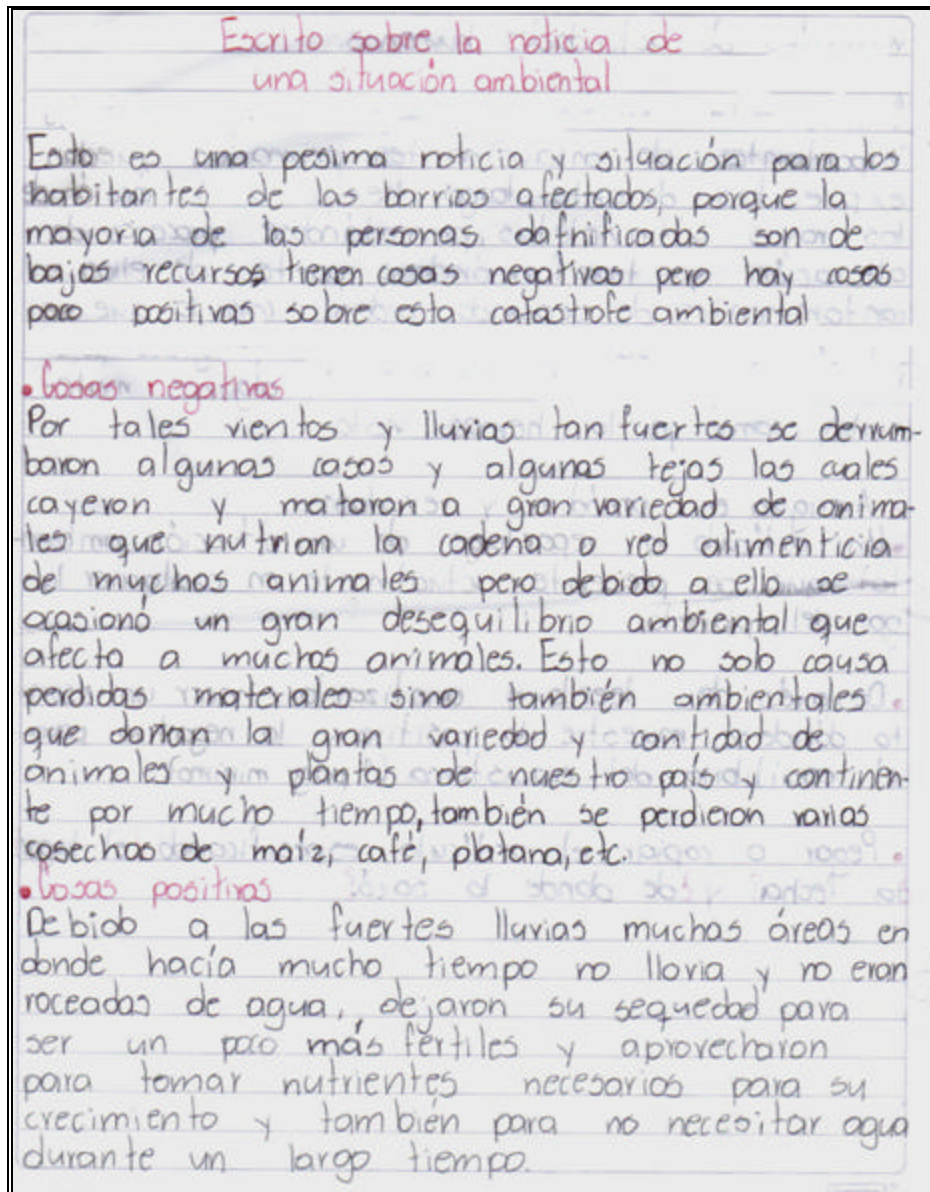 Escrito sobre la noticia de
una situación ambiental
Esta es una pesima noticia y situación para los
habitantes de los barrios afectados, porque la
mayoria de las personas dafnificadas son de
bajos recursos, tienen cosas negativas pero hay cosas
poco positivas sobre esta catastrofe ambiental
• Cosas negativas
Por tales vientos y lluvias tan fuertes se derrum-
baron algunas casas y algunas tejas las cuales
cayeron y mataron a gran variedad de anima-
les que nutrian la cadena o red alimenticia
de muchos animales pero debido a ello se
ocasionó un gran desequilibrio ambiental que
afecta a muchos animales. Esto no solo causa
perdidas materiales sino también ambientales
que dañan la gran variedad y cantidad de
animales y plantas de nuestro país y continen-
te por mucho tiempo, también se perdieron varias
cosechas de maíz, café, platano, etc.
• Cosas positivas
Debido a las fuertes lluvias muchas áreas en
donde hacía mucho tiempo no llovia y no eran
roceadas de agua, dejaron su sequedad para
ser un poco más fértiles y aprovecharon
para tomar nutrientes necesarios para su
crecimiento y también para no necesitar agua
durante un largo tiempo.